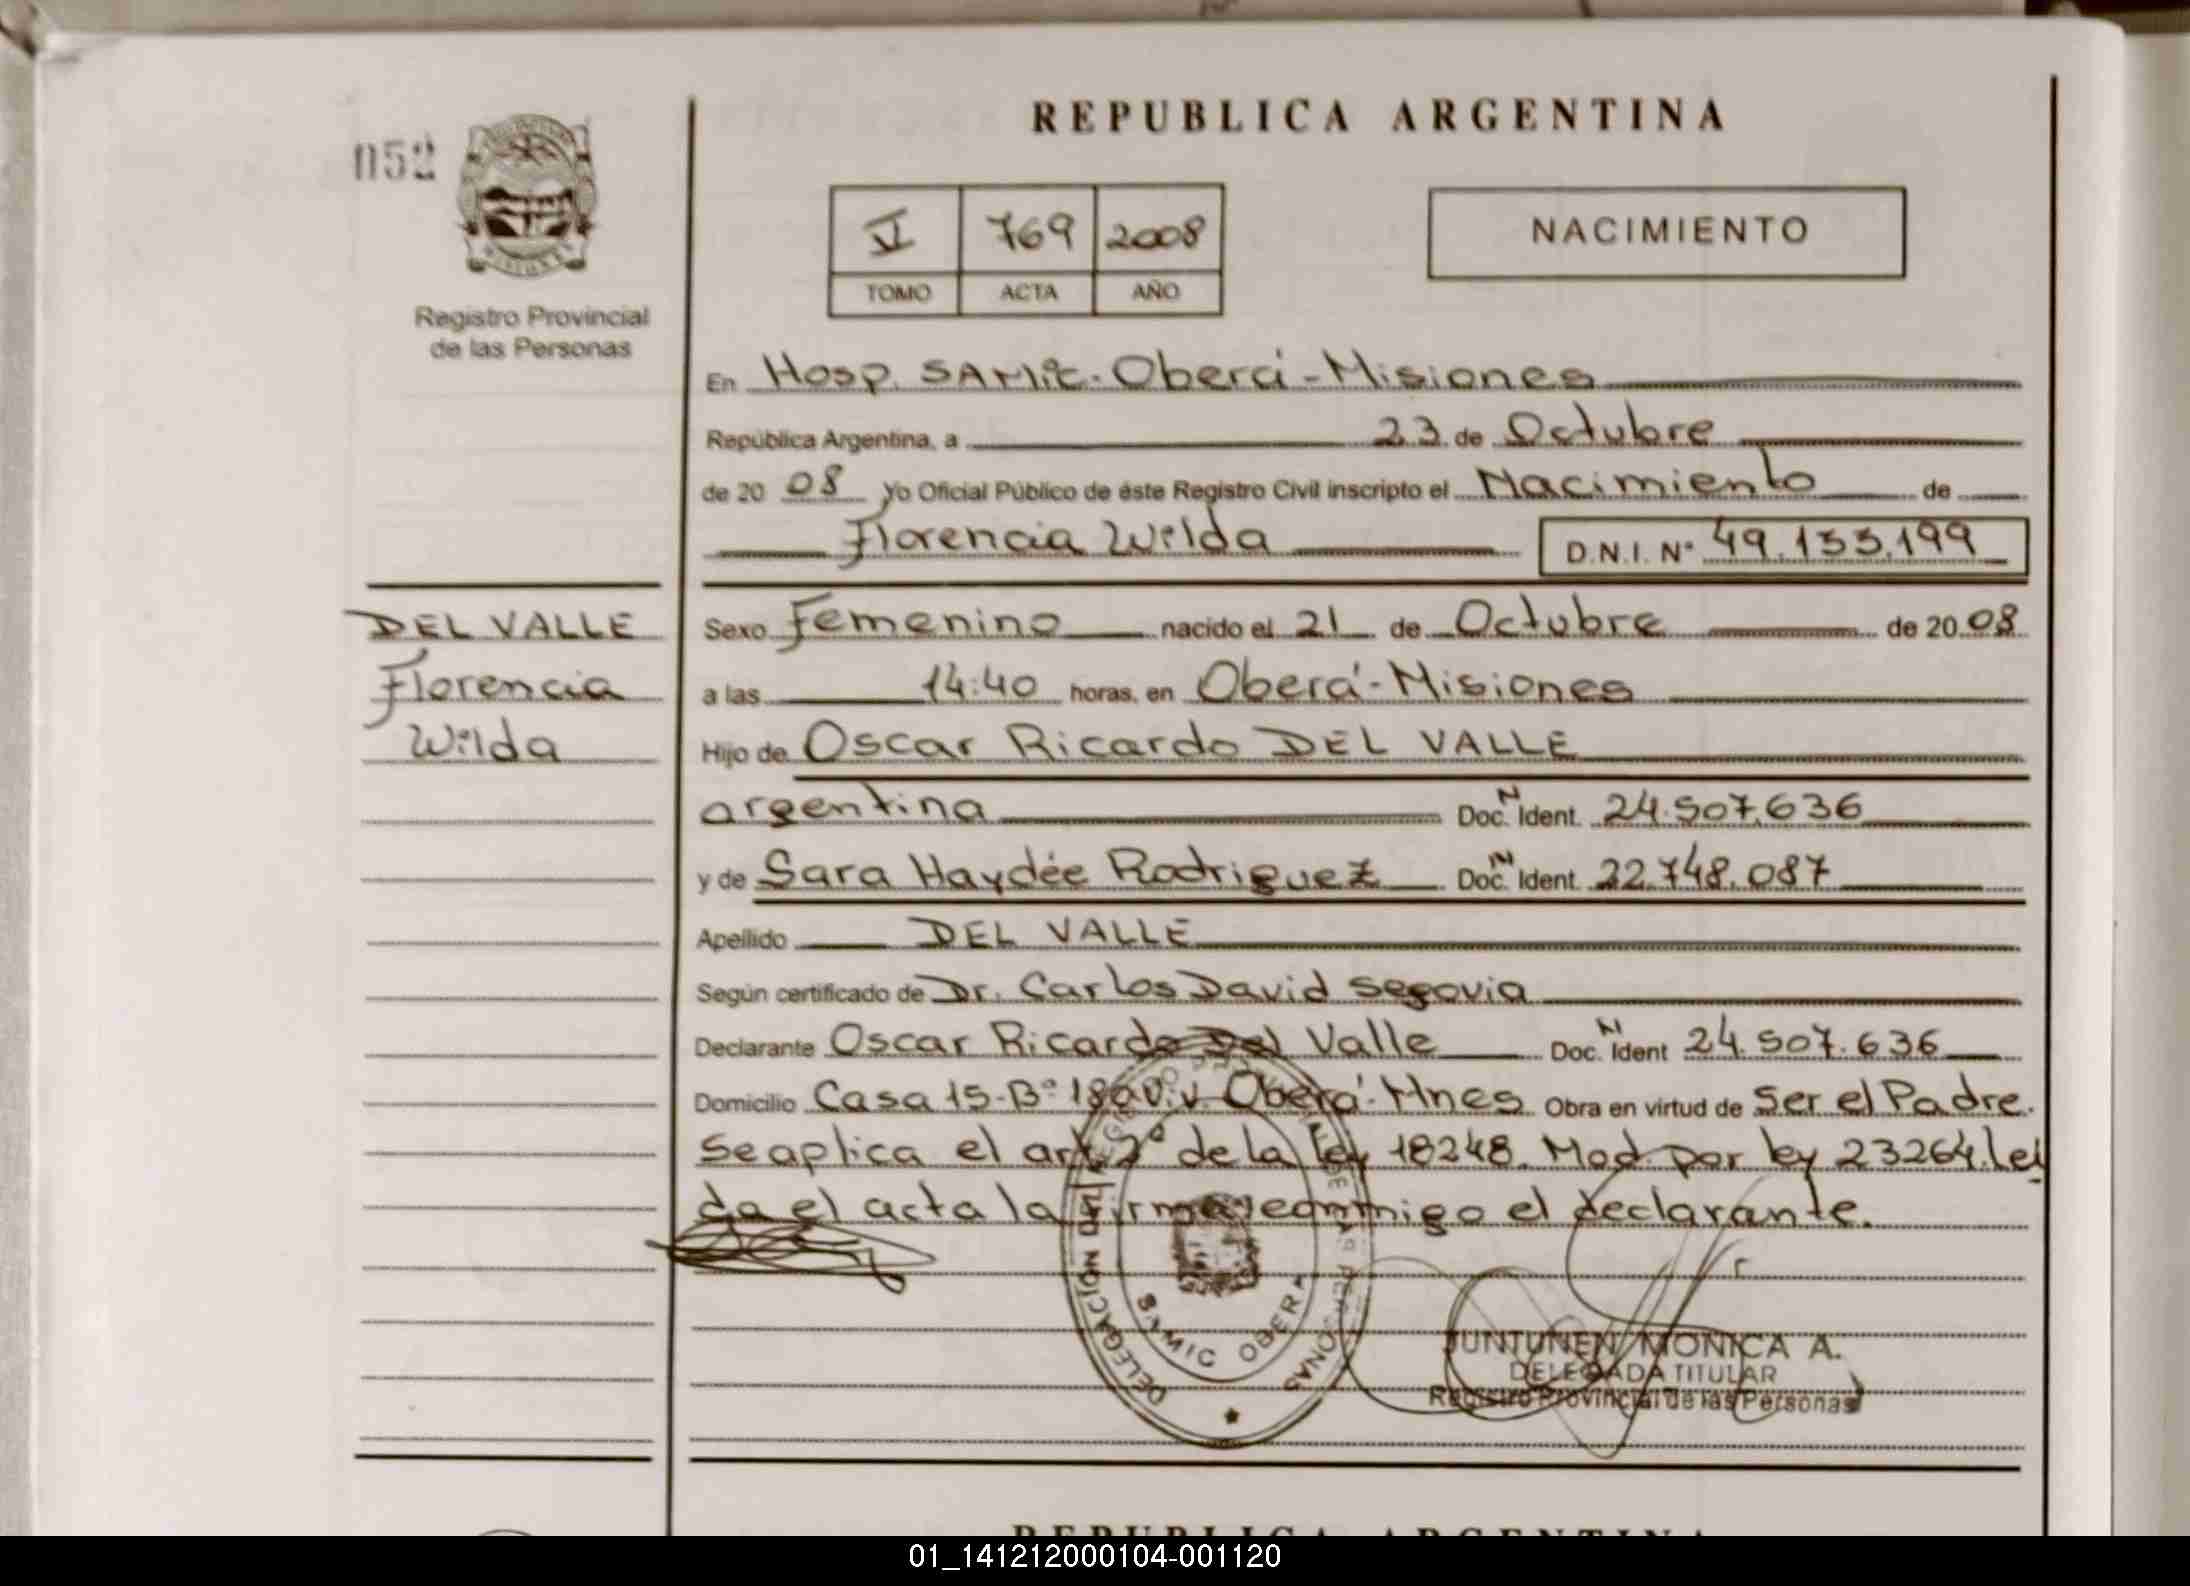 REPUBLICA ARGENTINA
052
V 769 2008
TOMO ACTA AÑO
NACIMIENTO
Registro Provincial
de las Personas
En Hosp. SAMic. Oberá - Misiones
República Argentina, a 23 de Octubre
de 20 08 Yo Oficial Público de éste Registro Civil inscripto el Nacimiento de
Florencia Wilda D.N.I. Nº 49.133.199
DEL VALLE
Florencia
Wilda
Sexo Femenino nacido el 21 de Octubre de 20 08
a las 14:40 horas, en Oberá - Misiones
Hijo de Oscar Ricardo DEL VALLE
argentina Doc. N Ident. 24.507.636
y de Sara Haydée Rodriguez Doc. N Ident. 22.748.087
Apellido DEL VALLE
Según certificado de Dr. Carlos David Segovia
Declarante Oscar Ricardo Del Valle Doc. N Ident 24.507.636
Domicilio Casa 15-Bº 180 Viv. Oberá-Mnes Obra en virtud de Ser el Padre.
Se aplica el art. 2º de la Ley 18248. Mod. por ley 23264. Lei
da el acta la firma conmigo el declarante.
DELEGACION DEL REGISTRO PROVINCIAL DE LAS PERSONAS
SAMIC OBERA
JUNTUNEN MONICA A.
DELEGADA TITULAR
Registro Provincial de las Personas
REPUBLICA ARGENTINA
01_141212000104-001120